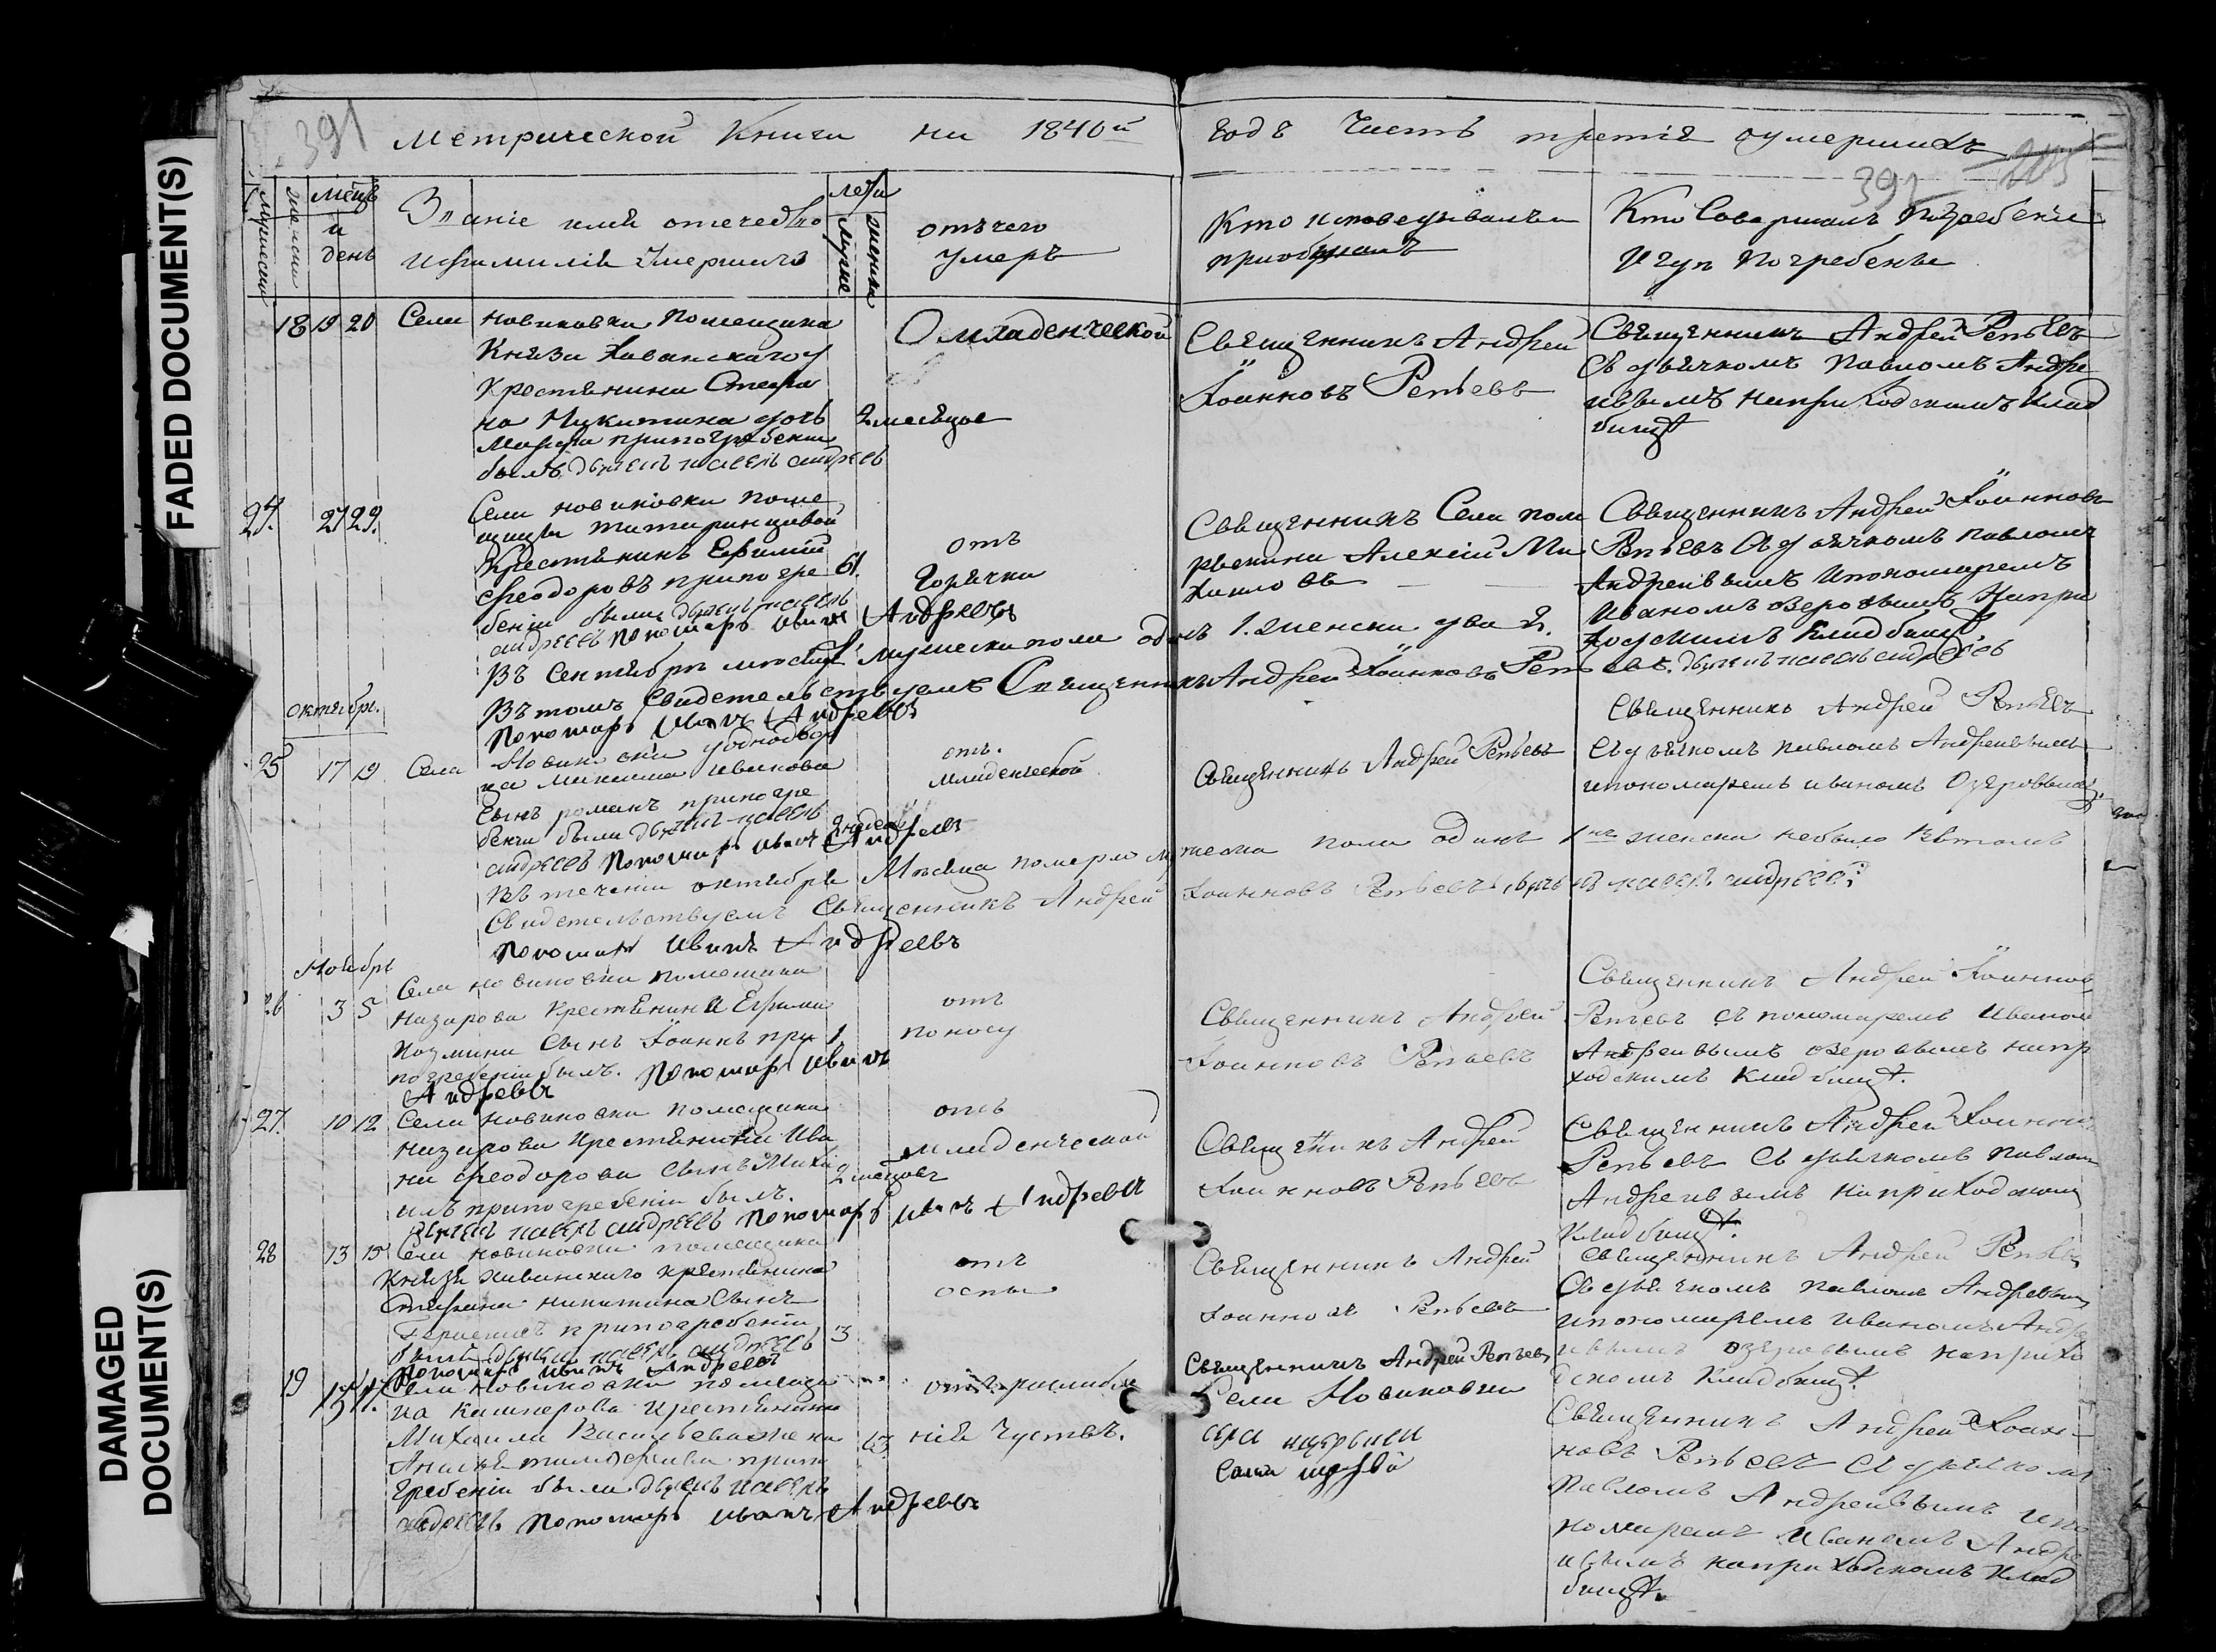 FADED DOCUMENT(S)
DAMAGED
DOCUMENT(S)
391
Метрической Книги на 1840й
годъ Часть третія оумершихъ
392
мужески
женски
мецъ
и
день
Званіе имя отечество
и фамилія Умершихъ
лета
мужие
женски
отъ чего
умеръ
Кто исповедывалъ и
приобщалъ
Кто Совершалъ Погребеніе
и гдѣ Погребены
18 19 20 Села Новиковки Помещика
Князя Хованскаго
Крестьянина Стефа
на Никитина дочь
Марфа при погребении
былъ дьячекъ павелъ андреевъ
2 месяцов
О младенческой
Священникъ Андрей
Іоанновъ Репьевъ
Священникъ Андрей Репьевъ
Съ дьячкомъ Павломъ Андре
евымъ на приходскомъ клад
бищѣ
24. 27 29.
Села новиковки поме
щицы Татаринцовой
Крестьянинъ Ефимий
Феодоровъ при погре 61.
бении были дьячекъ павелъ
андреевъ Пономарь Иванъ Андреевъ
отъ
Горячки
Священникъ Села
Алексий Ми
хаиловъ
Священникъ Андрей Іоанновъ
Репьевъ Съ дьячкомъ павломъ
Андреивымъ и пономаремъ
Иваномъ Озеровымъ На при
ходскимъ Кладбищѣ.
Въ Сентябрѣ месяцѣ мужески пола одинъ 1. женски два 2.
Въ томъ Свидетельствуемъ Священникъ Андрей Іоанновъ Репьевъ. дьячекъ павелъ андреевъ
Пономарь Иванъ Андреевъ
октябрь.
25 17 19 Села Новиковки однодвор
ца Иванова
Сынъ романъ при погре
бении были дьячекъ павелъ
андреевъ Пономарь Иванъ Андреевъ
2 недели
отъ.
младенческой
Священникъ Андрей Репьевъ
Священникъ Андрей Репьевъ
Съ дьячкомъ павломъ Андреивымъ
и пономаремъ иваномъ Озеровымъ
Въ течении октября Месяца померло мужеска пола одинъ 1нъ женски небыло Въ томъ
Свидетельствуемъ Священникъ Андрей Іоанновъ Репьевъ дьячекъ павелъ андреевъ
Пономарь Иванъ Андреевъ
Ноябрь
26 3 5
Села новиковки помещика
Назарова Крестьянина Ефима
Козмина Сынъ Іоаннъ при 1
погребении былъ. Пономарь Иванъ
Андреевъ
отъ
поносу
Священникъ Андрей
Іоанновъ Репьевъ
Священникъ Андрей Іоанновъ
Репьевъ съ пономаремъ Иваном
Андреивымъ озеровымъ на при
ходскимъ Кладбищѣ.
27. 10 12 Села Новиковки помещика
Назарова Крестьянина Ива
на Феодорова Сынъ Миха
илъ при погребении былъ.
дьячекъ павелъ андреевъ Пономарь Иванъ Андреевъ
2 месяцовъ
отъ
младенческой
Священникъ Андрей
Іоанновъ Репьевъ
Священникъ Андрей Іоаннов
Репьевъ Съ дьячкомъ Павлом
Андреивымъ на приходском
Кладбищѣ.
28 13 15 Села новиковки помещика
Князя хованскаго крестьянина
Стефана никитина Сынъ
Герасимъ при погребении 3
были дьячекъ павелъ андреевъ
Пономарь Иванъ Андреевъ
отъ
оспы
Священникъ Андрей
Іоанновъ Репьевъ
Священникъ Андрей Репьевъ
Съ дьячкомъ павломъ Андревым
и пономаремъ Иваномъ Андре
ивымъ озеровымъ на прихо
дскомъ Кладбищѣ.
19 15 17. Села Новиковки помещи
ка Крестьянина
Михаила Васильева жена
при по
гребении были дьячекъ павелъ
андреевъ Пономарь Иванъ Андреевъ
63.
отъ расслабле
ния Чувствъ.
Священникъ Андрей Репьевъ
Села Новиковки
Священникъ Андрей Іоан
новъ Репьевъ Съ дьячкомъ
Павломъ Андреивымъ и по
номаремъ Иваномъ Андре
ивымъ на приходскомъ Клад
бищѣ.